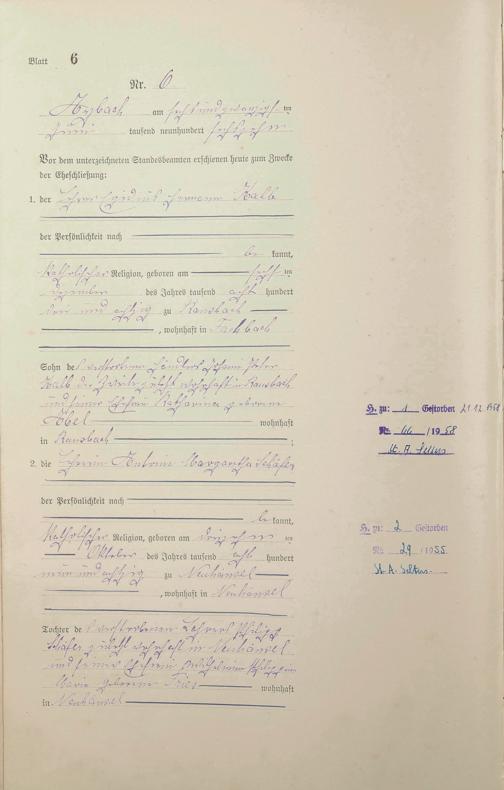 Blatt 6
Nr. 6
am sechsundzwanzigsten
Juni tausend neunhundert sechszehn
Vor dem unterzeichneten Standesbeamten erschienen heute zum Zwecke
der Eheschließung:
1. der Lehrer Egidius Hermann Kalb
der Persönlichkeit nach
be kannt,
katholischer Religion, geboren am sechsten
des Jahres tausend acht hundert
drei und achtzig zu Ransbach
, wohnhaft in
Sohn des verstorbenen Händlers Johann Peter
Kalb des zuletzt wohnhaft in Ransbach
und seiner Ehefrau Katharina geborene
Ebel wohnhaft
in Ransbach ;
2. die Lehrerin Antonie Margaretha Schäfer
der Persönlichkeit nach
be kannt,
katholischer Religion, geboren am
Oktober des Jahres tausend acht hundert
neun und achtzig zu Neuhäusel
, wohnhaft in Neuhäusel
Tochter des verstorbenen Lehrers Philipp
Schäfer zuletzt wohnhaft in Neuhäusel
und seiner Ehefrau Wilhelmine Philippine
Marie geborene wohnhaft
in Neuhäusel
H. zu: 1 Gestorben 21.12.1958
Nr. 44 /1958
St. A. Selters
H. zu: 2 Gestorben
Nr. 29 /1955
St. A. Selters